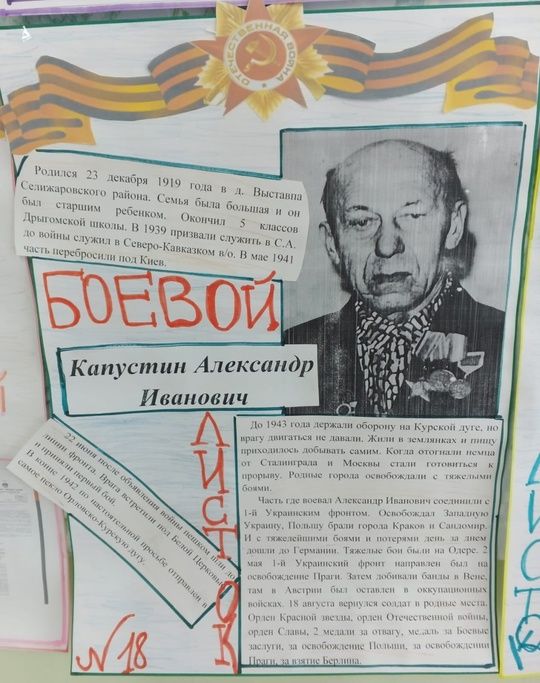 ОТЕЧЕСТВЕННАЯ ВОЙНА
Родился 23 декабря 1919 года в д. Выставпа
Селижаровского района. Семья была большая и он
был старшим ребенком. Окончил 5 классов
Дрыгомской школы. В 1939 призвали служить в С.А.
до войны служил в Северо-Кавказком в/о. В мае 1941
часть перебросили под Киев.
БОЕВОЙ
Капустин Александр
Иванович
22 июня после объявления войны пешком шли до
линии фронта. Врага встретили под Белой Церковью
и приняли первый бой.
В конце 1942 по настоятельной просьбе отправлен в
самое пекло Орловско-Курскую дугу.
ЛИСТОК
До 1943 года держали оборону на Курской дуге, но
врагу двигаться не давали. Жили в землянках и пищу
приходилось добывать самим. Когда отогнали немца
от Сталинграда и Москвы стали готовиться к
прорыву. Родные города освобождали с тяжелыми
боями.
Часть где воевал Александр Иванович соединили с
1-й Украинским фронтом. Освобождал Западную
Украину, Польшу брали города Краков и Сандомир.
И с тяжелейшими боями и потерями день за днем
дошли до Германии. Тяжелые бои были на Одере. 2
мая 1-й Украинский фронт направлен был на
освобождение Праги. Затем добивали банды в Вене,
там в Австрии был оставлен в оккупационных
войсках. 18 августа вернулся солдат в родные места.
Орден Красной звезды, орден Отечественной войны,
орден Славы, 2 медали за отвагу, медаль за Боевые
заслуги, за освобождение Польши, за освобождении
Праги, за взятие Берлина.
№18